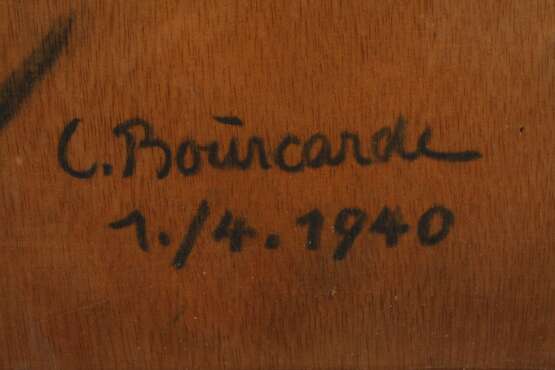 C. Boūrcarde
1./4.1940